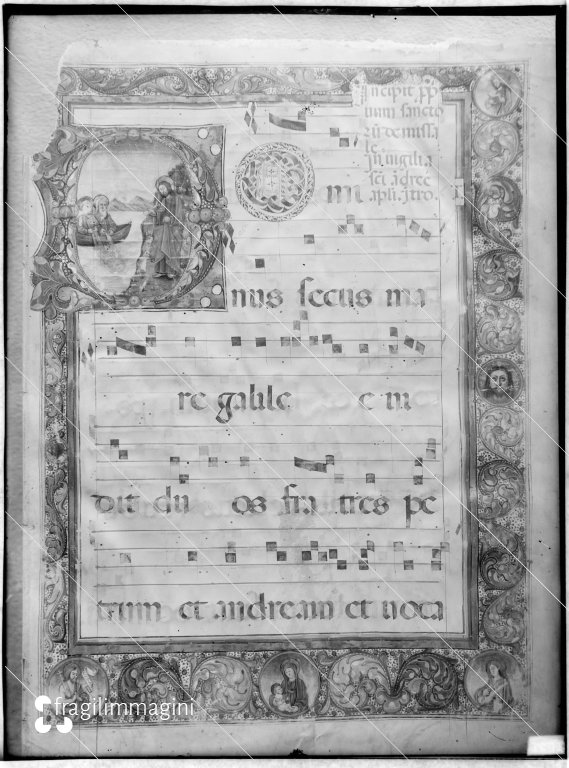 Incipit pp
uum sancto
rū de missa
le
In uigilia
sci Andree
apli. Itro.
mi
nus secus ma
re galile e ui
dit du os fra tres pe
trum et andream et uoca
fragilimmagini